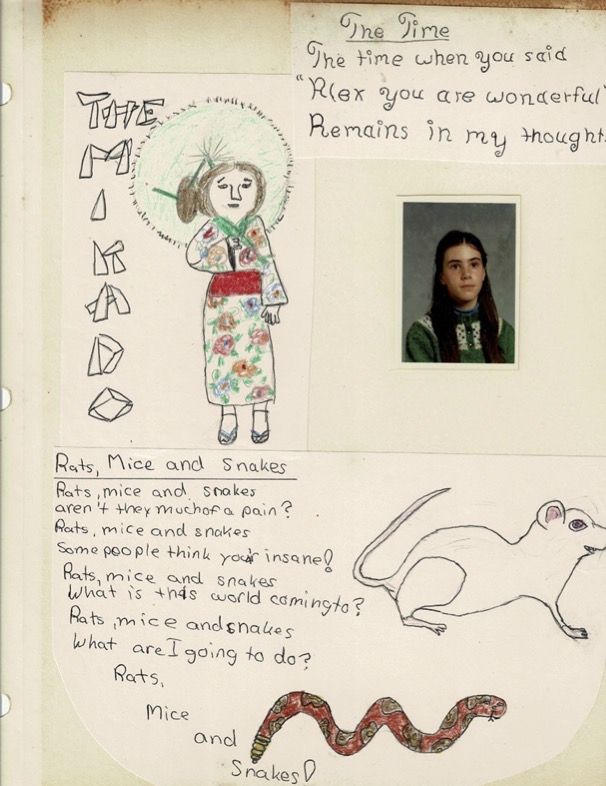 The Time
The time when you said
"Alex you are wonderful"
Remains in my thought
THE
M
I
K
A
D
O
Rats, Mice and Snakes
Rats, mice and snakes
aren't they much of a pain?
Rats, mice and snakes
Some people think you'r insane!
Rats, mice and snakes
What is this world coming to?
Rats, mice and snakes
What are I going to do?
Rats,
Mice
and
Snakes!